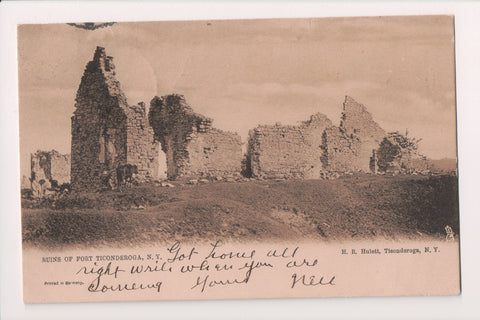 RUINS OF FORT TICONDEROGA, N. Y.
H. R. Hulett, Ticonderoga, N. Y.
Got home all
right write when you are
Printed in Germany.
comeing Yours Nell